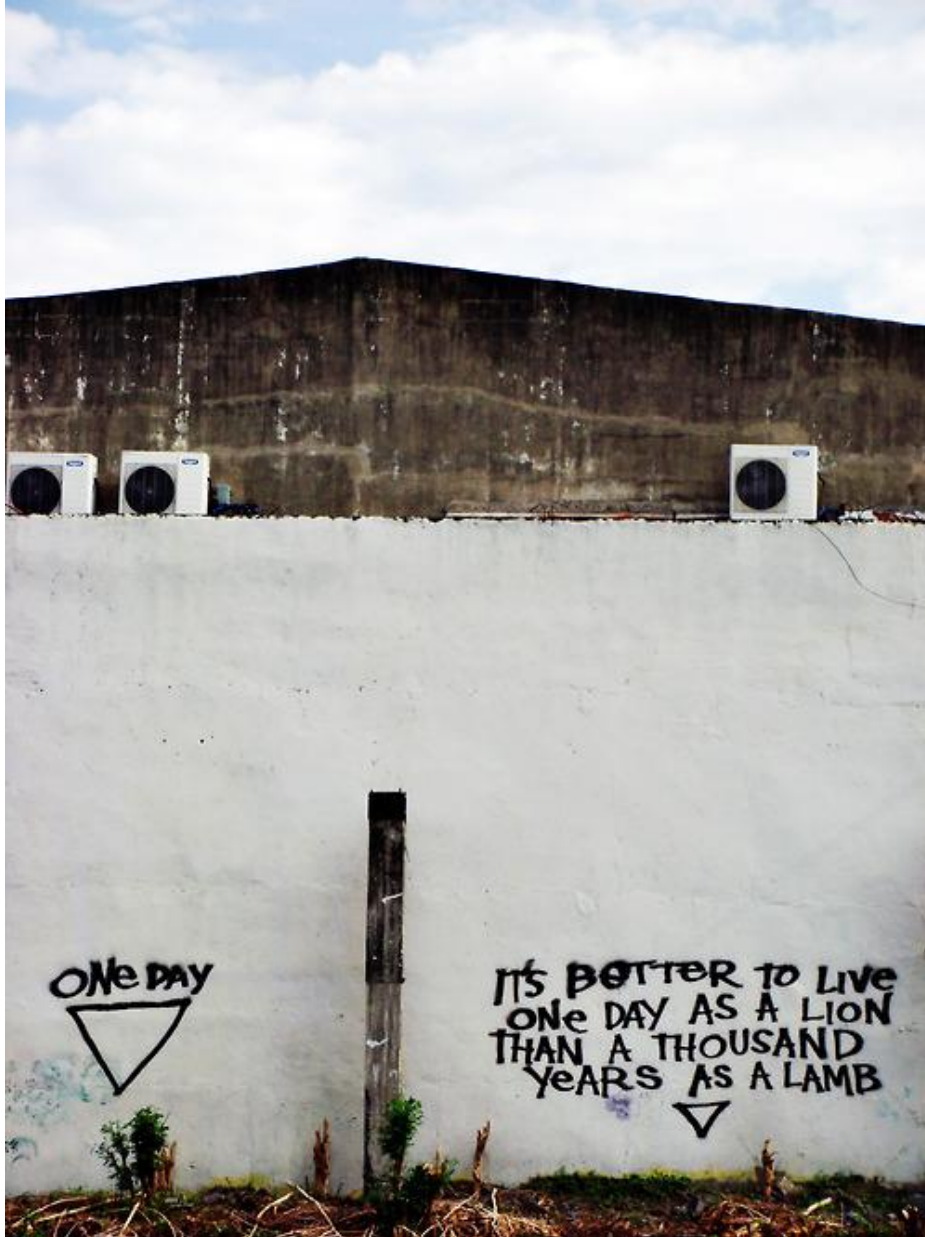 ONe DAY
IT'S BETTER TO LIVe
ONe DAY AS A LION
THAN A THOUSAND
YeARS AS A LAMB